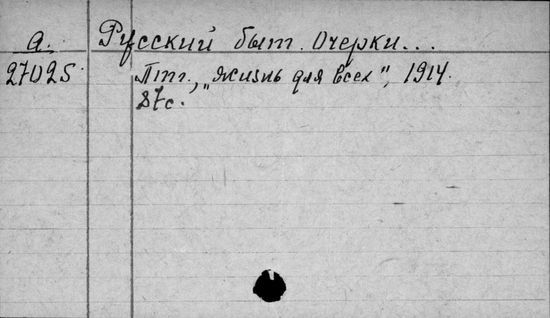 а. Русский быт. Очерки...
27025 Птг., „Жизнь для всех", 1914.
87с.